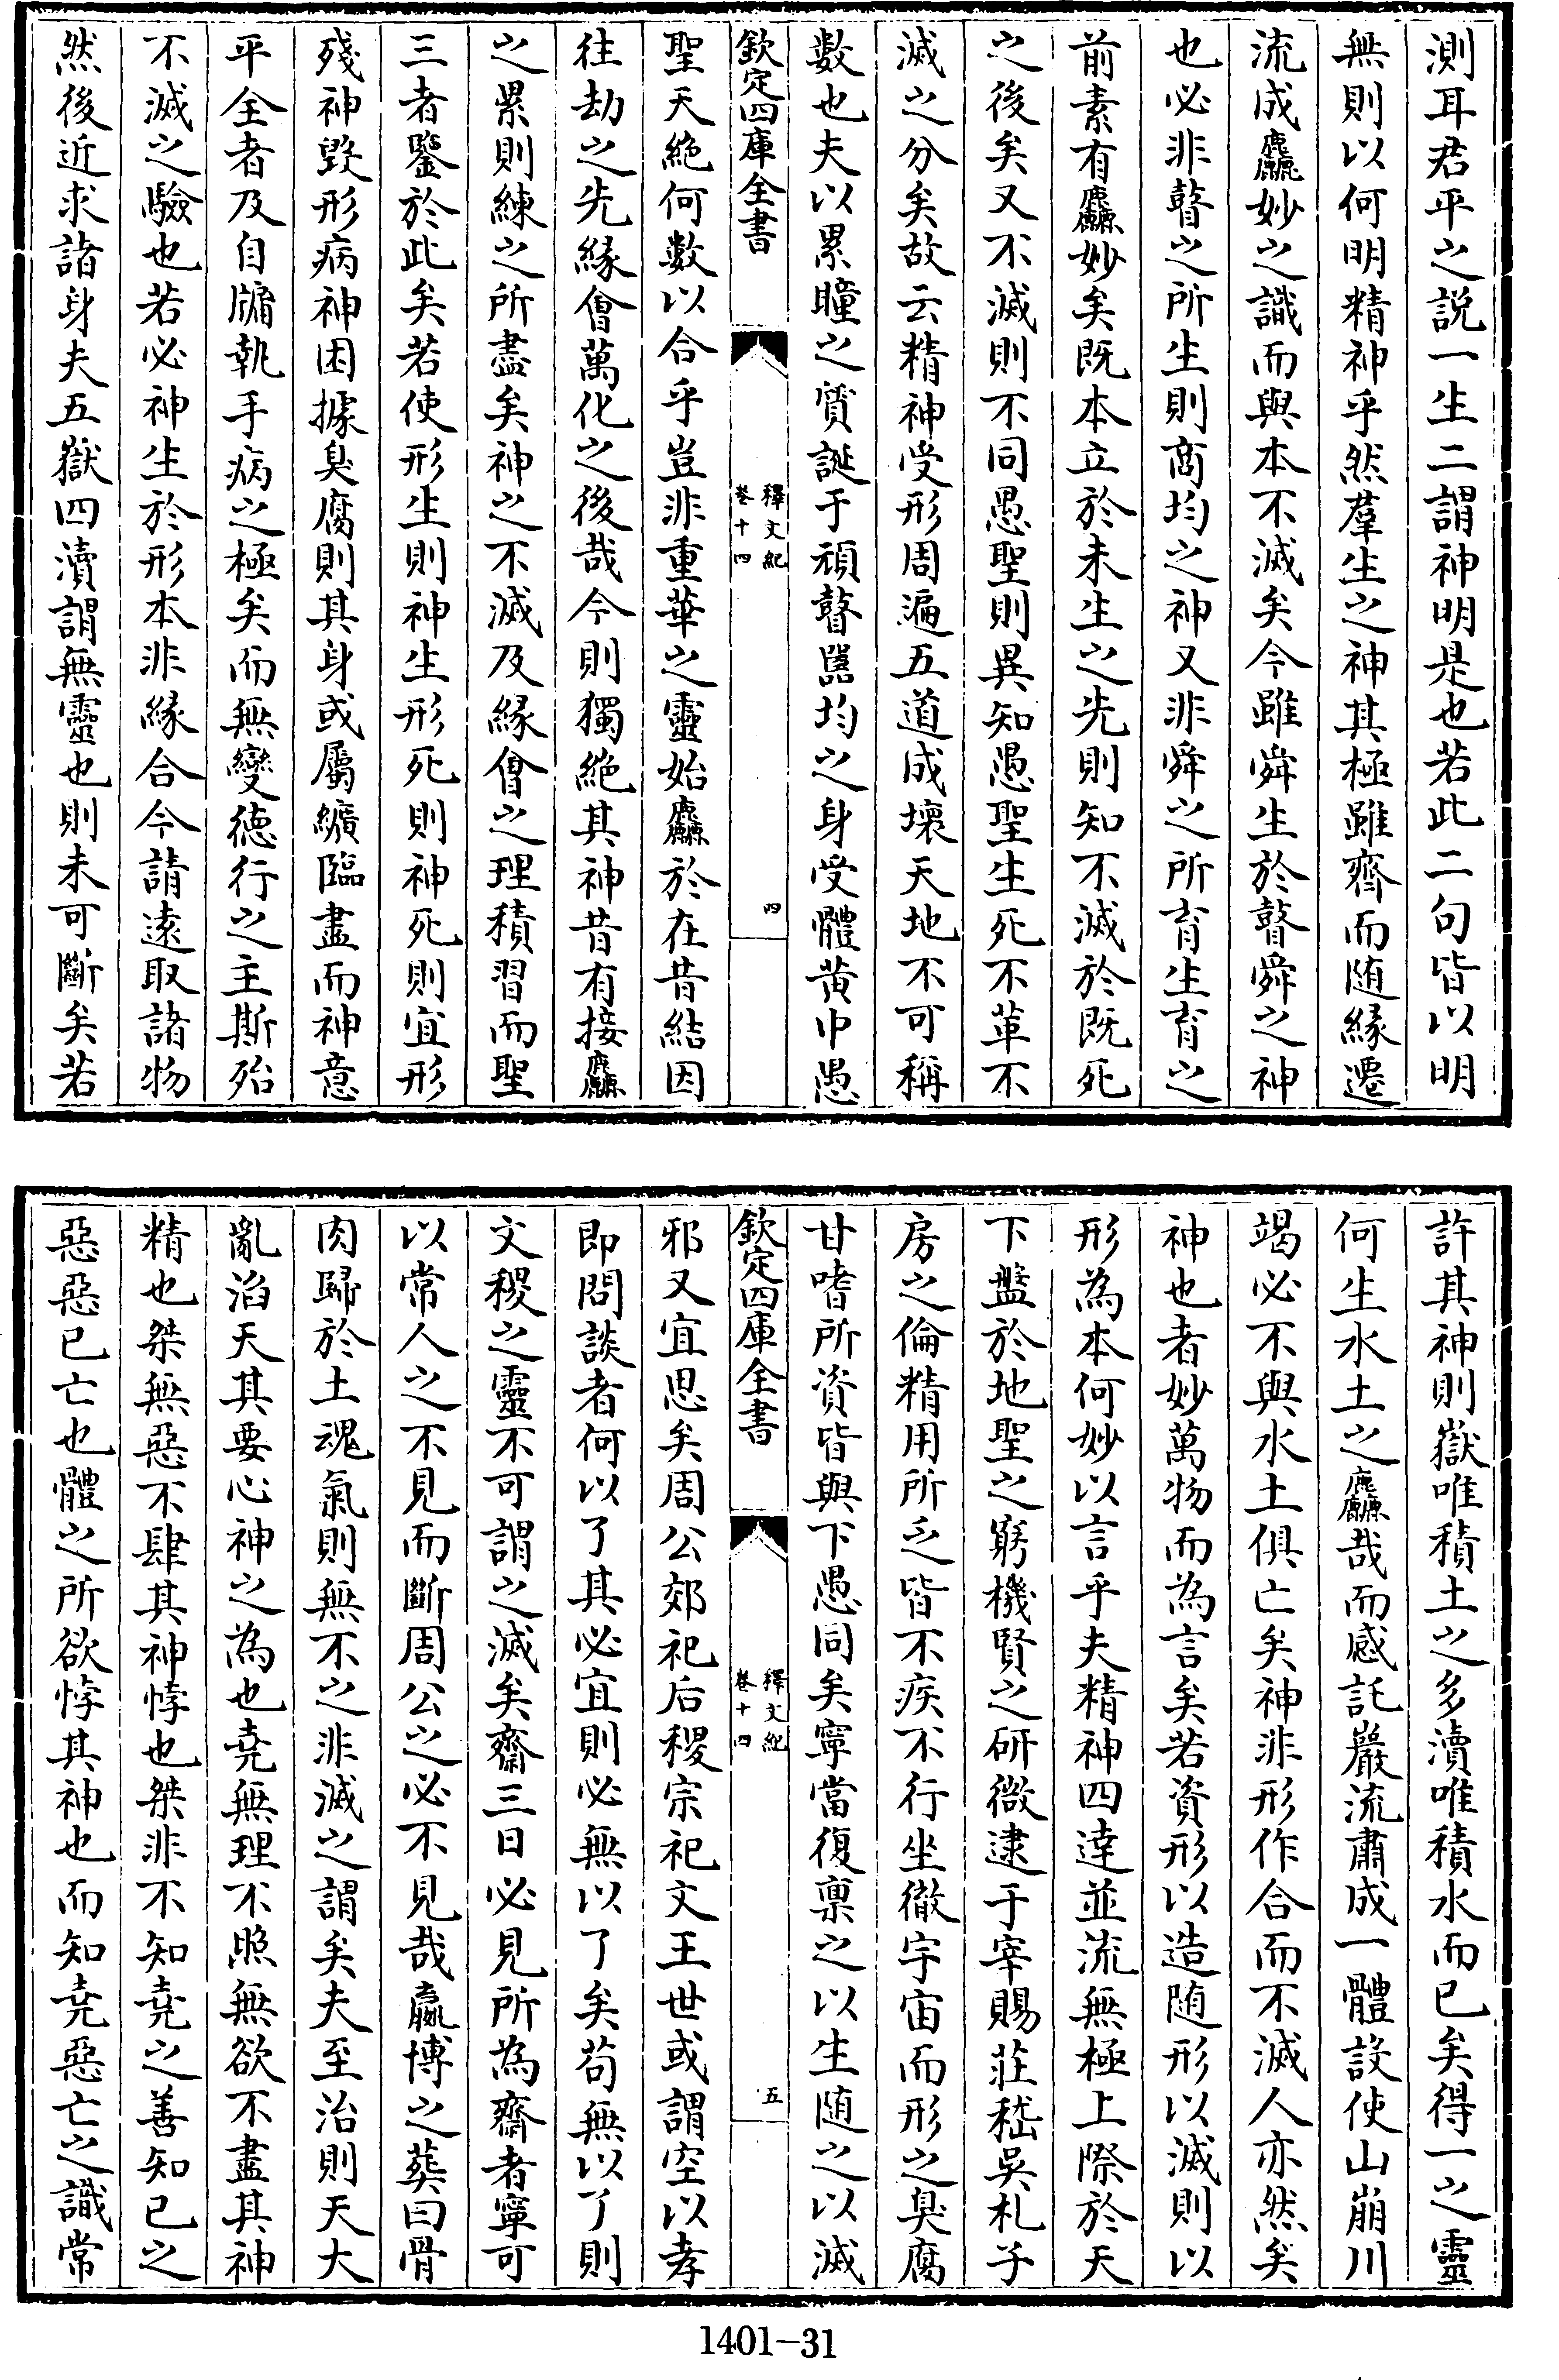 測耳君平之説一生二謂神明是也若此二句皆以明
無則以何明精神乎然羣生之神其極雖齊而随緣遷
流成麤妙之識而與本不滅矣今雖舜生於瞽舜之神
也必非瞽之所生則商均之神又非舜之所育生育之
前素有麤妙矣既本立於未生之先則知不滅於既死
之後矣又不滅則不同愚聖則異知愚聖生死不革不
滅之分矣故云精神受形周遍五道成壞天地不可稱
數也夫以累瞳之質誕于頑瞽嚚均之身受體黄中愚
欽定四庫全書
釋文紀
卷十四
四
聖天絶何數以合乎豈非重華之靈始麤於在昔結因
往劫之先緣會萬化之後哉今則獨絶其神昔有接麤
之累則練之所盡矣神之不滅及緣會之理積習而聖
三者鑒於此矣若使形生則神生形死則神死則宜形
殘神毀形病神困據臭腐則其身或屬纊臨盡而神意
平全者及自牖執手病之極矣而無變德行之主斯殆
不滅之驗也若必神生於形本非緣合今請遠取諸物
然後近求諸身夫五嶽四瀆謂無靈也則未可斷矣若
許其神則嶽唯積土之多瀆唯積水而已矣得一之靈
何生水土之麤哉而感託巖流肅成一體設使山崩川
竭必不與水土俱亡矣神非形作合而不滅人亦然矣
神也者妙萬物而為言矣若資形以造随形以滅則以
形為本何妙以言乎夫精神四達並流無極上際於天
下盤於地聖之窮機賢之研微逮于宰賜莊嵇吳札子
房之倫精用所乏皆不疾不行坐徹宇宙而形之臭腐
甘嗜所資皆與下愚同矣寧當復稟之以生随之以滅
欽定四庫全書
釋文紀
卷十四
五
邪又宜思矣周公郊祀后稷宗祀文王世或謂空以孝
即問談者何以了其必宜則必無以了矣苟無以了則
文稷之靈不可謂之滅矣齋三日必見所為齋者寧可
以常人之不見而斷周公之必不見哉嬴博之葬曰骨
肉歸於土魂氣則無不之非滅之謂矣夫至治則天大
亂滔天其要心神之為也堯無理不照無欲不盡其神
精也桀無惡不肆其神悖也桀非不知堯之善知已之
惡惡已亡也體之所欲悖其神也而知堯惡亡之識常
1401-31